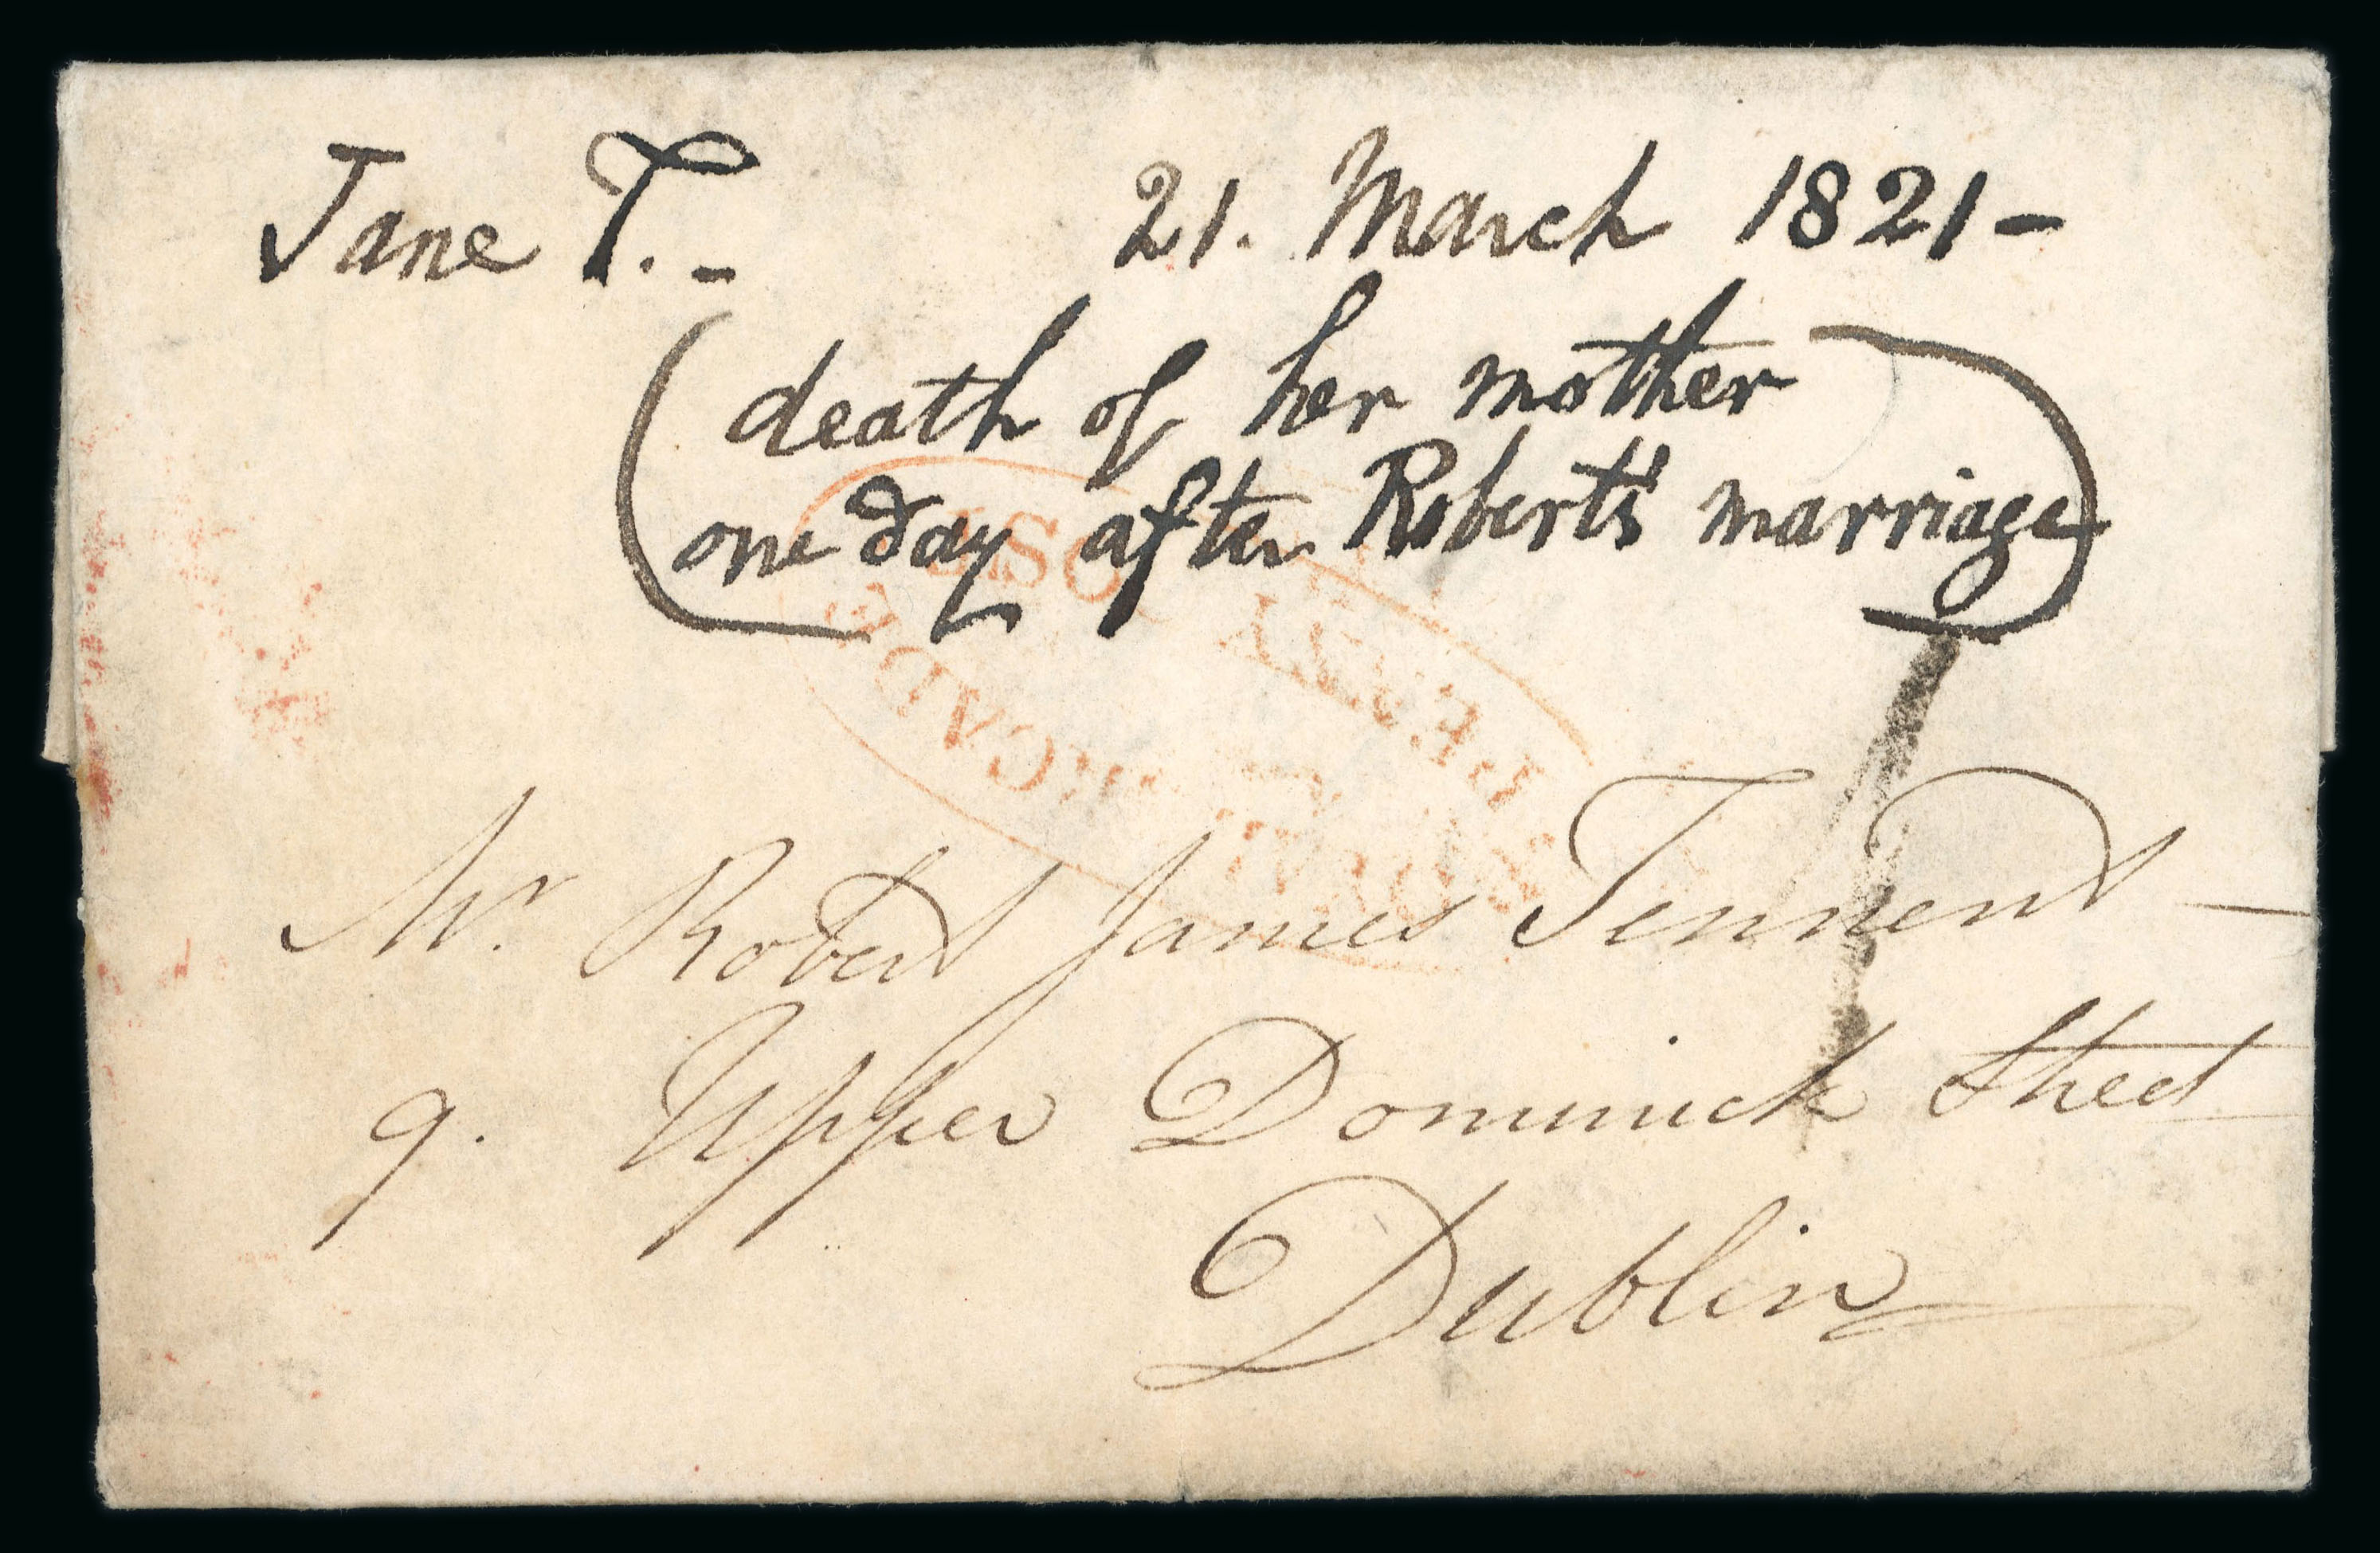 Jane T. - 21. March 1821 -
(death of her mother
one day after Robert's marriage)
PENNY POST
ROYAL ARCADE
Mr. Robert James Tennent -
9. Upper Dominick Street
Dublin